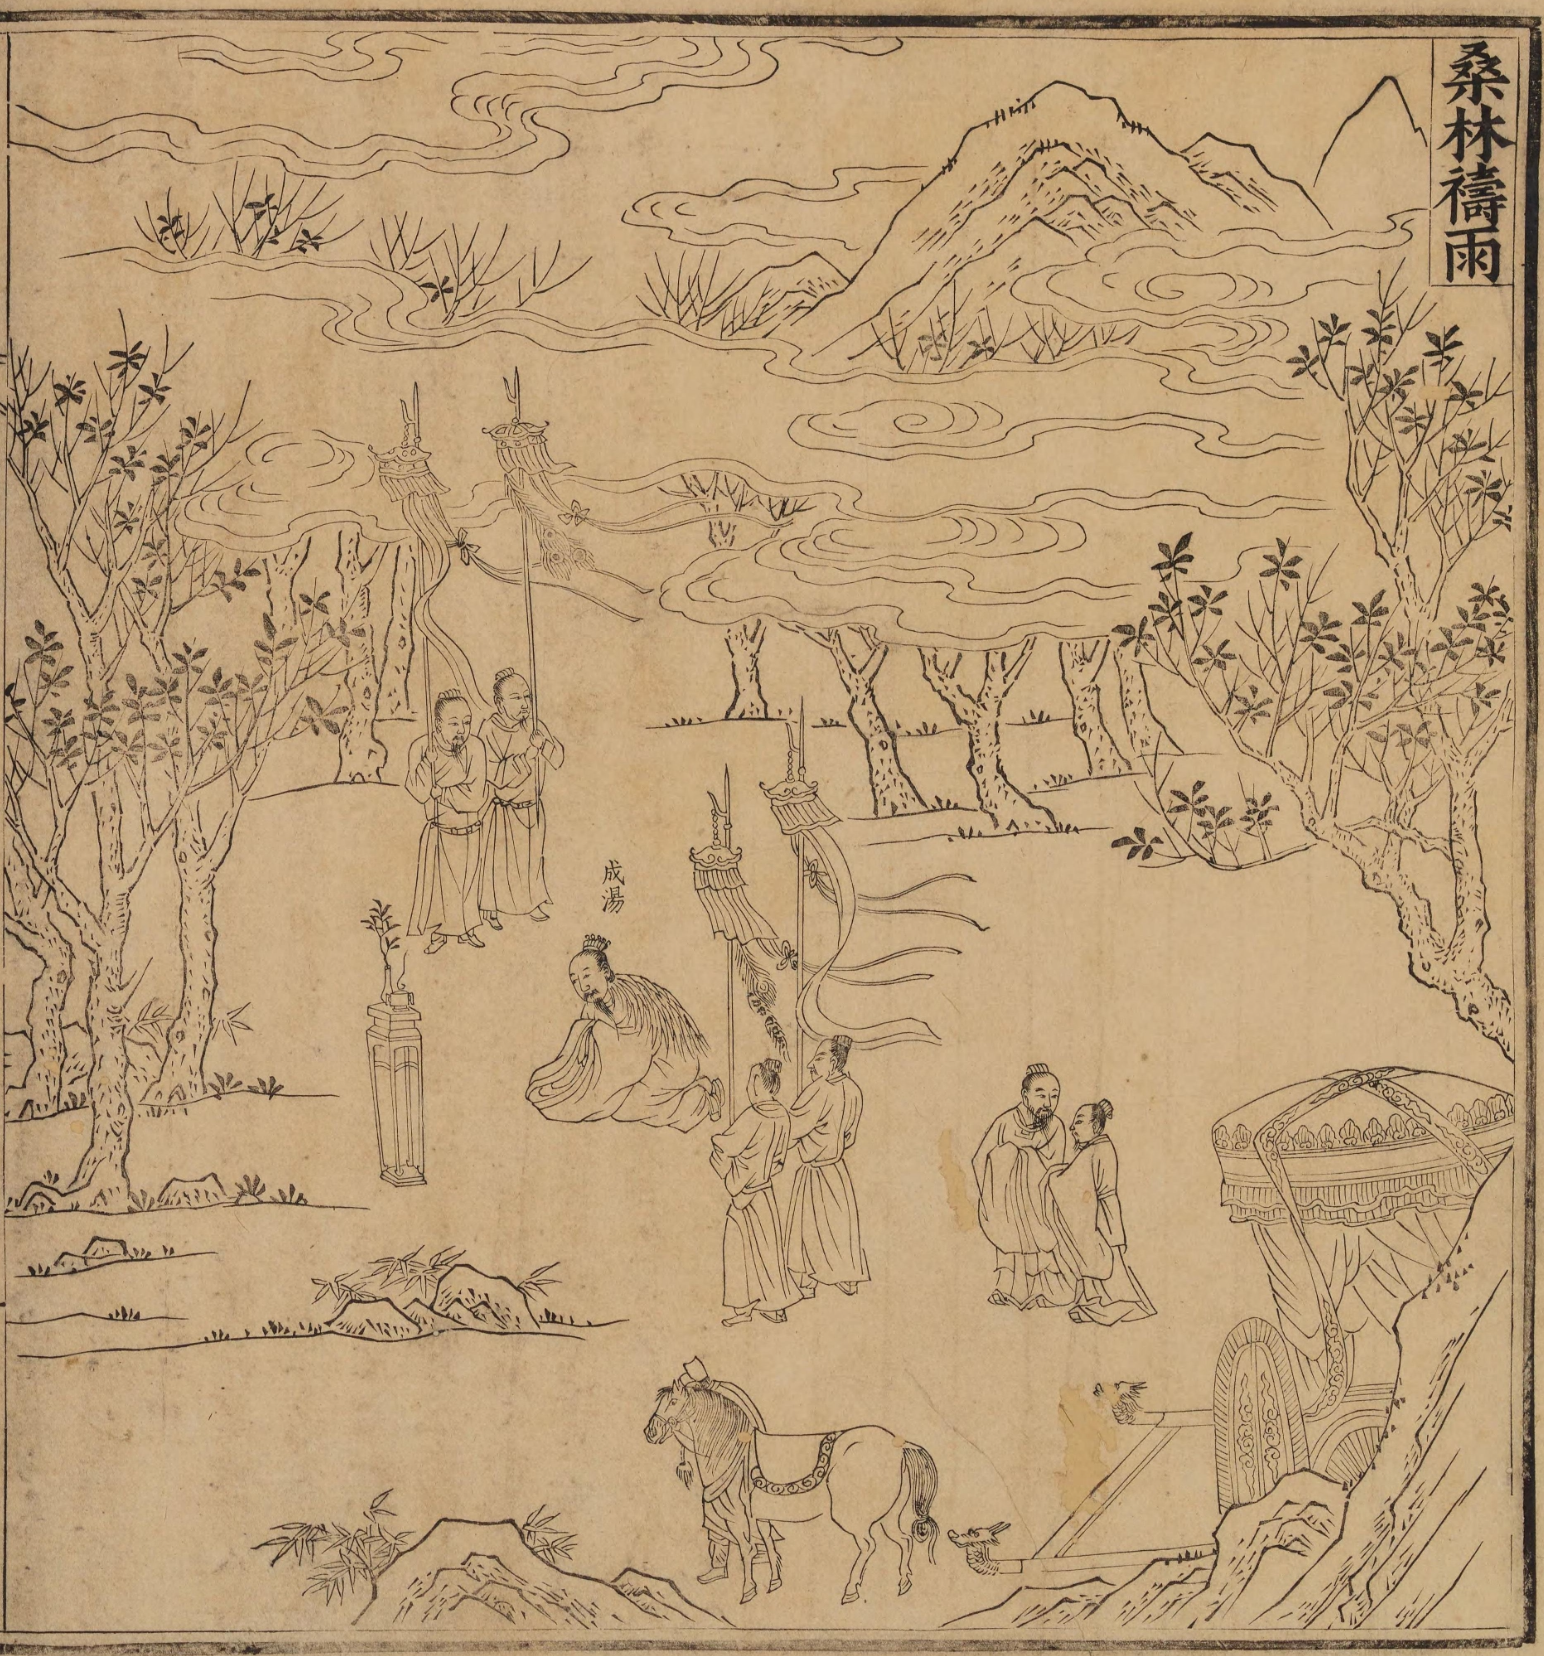 桑林禱雨
成湯